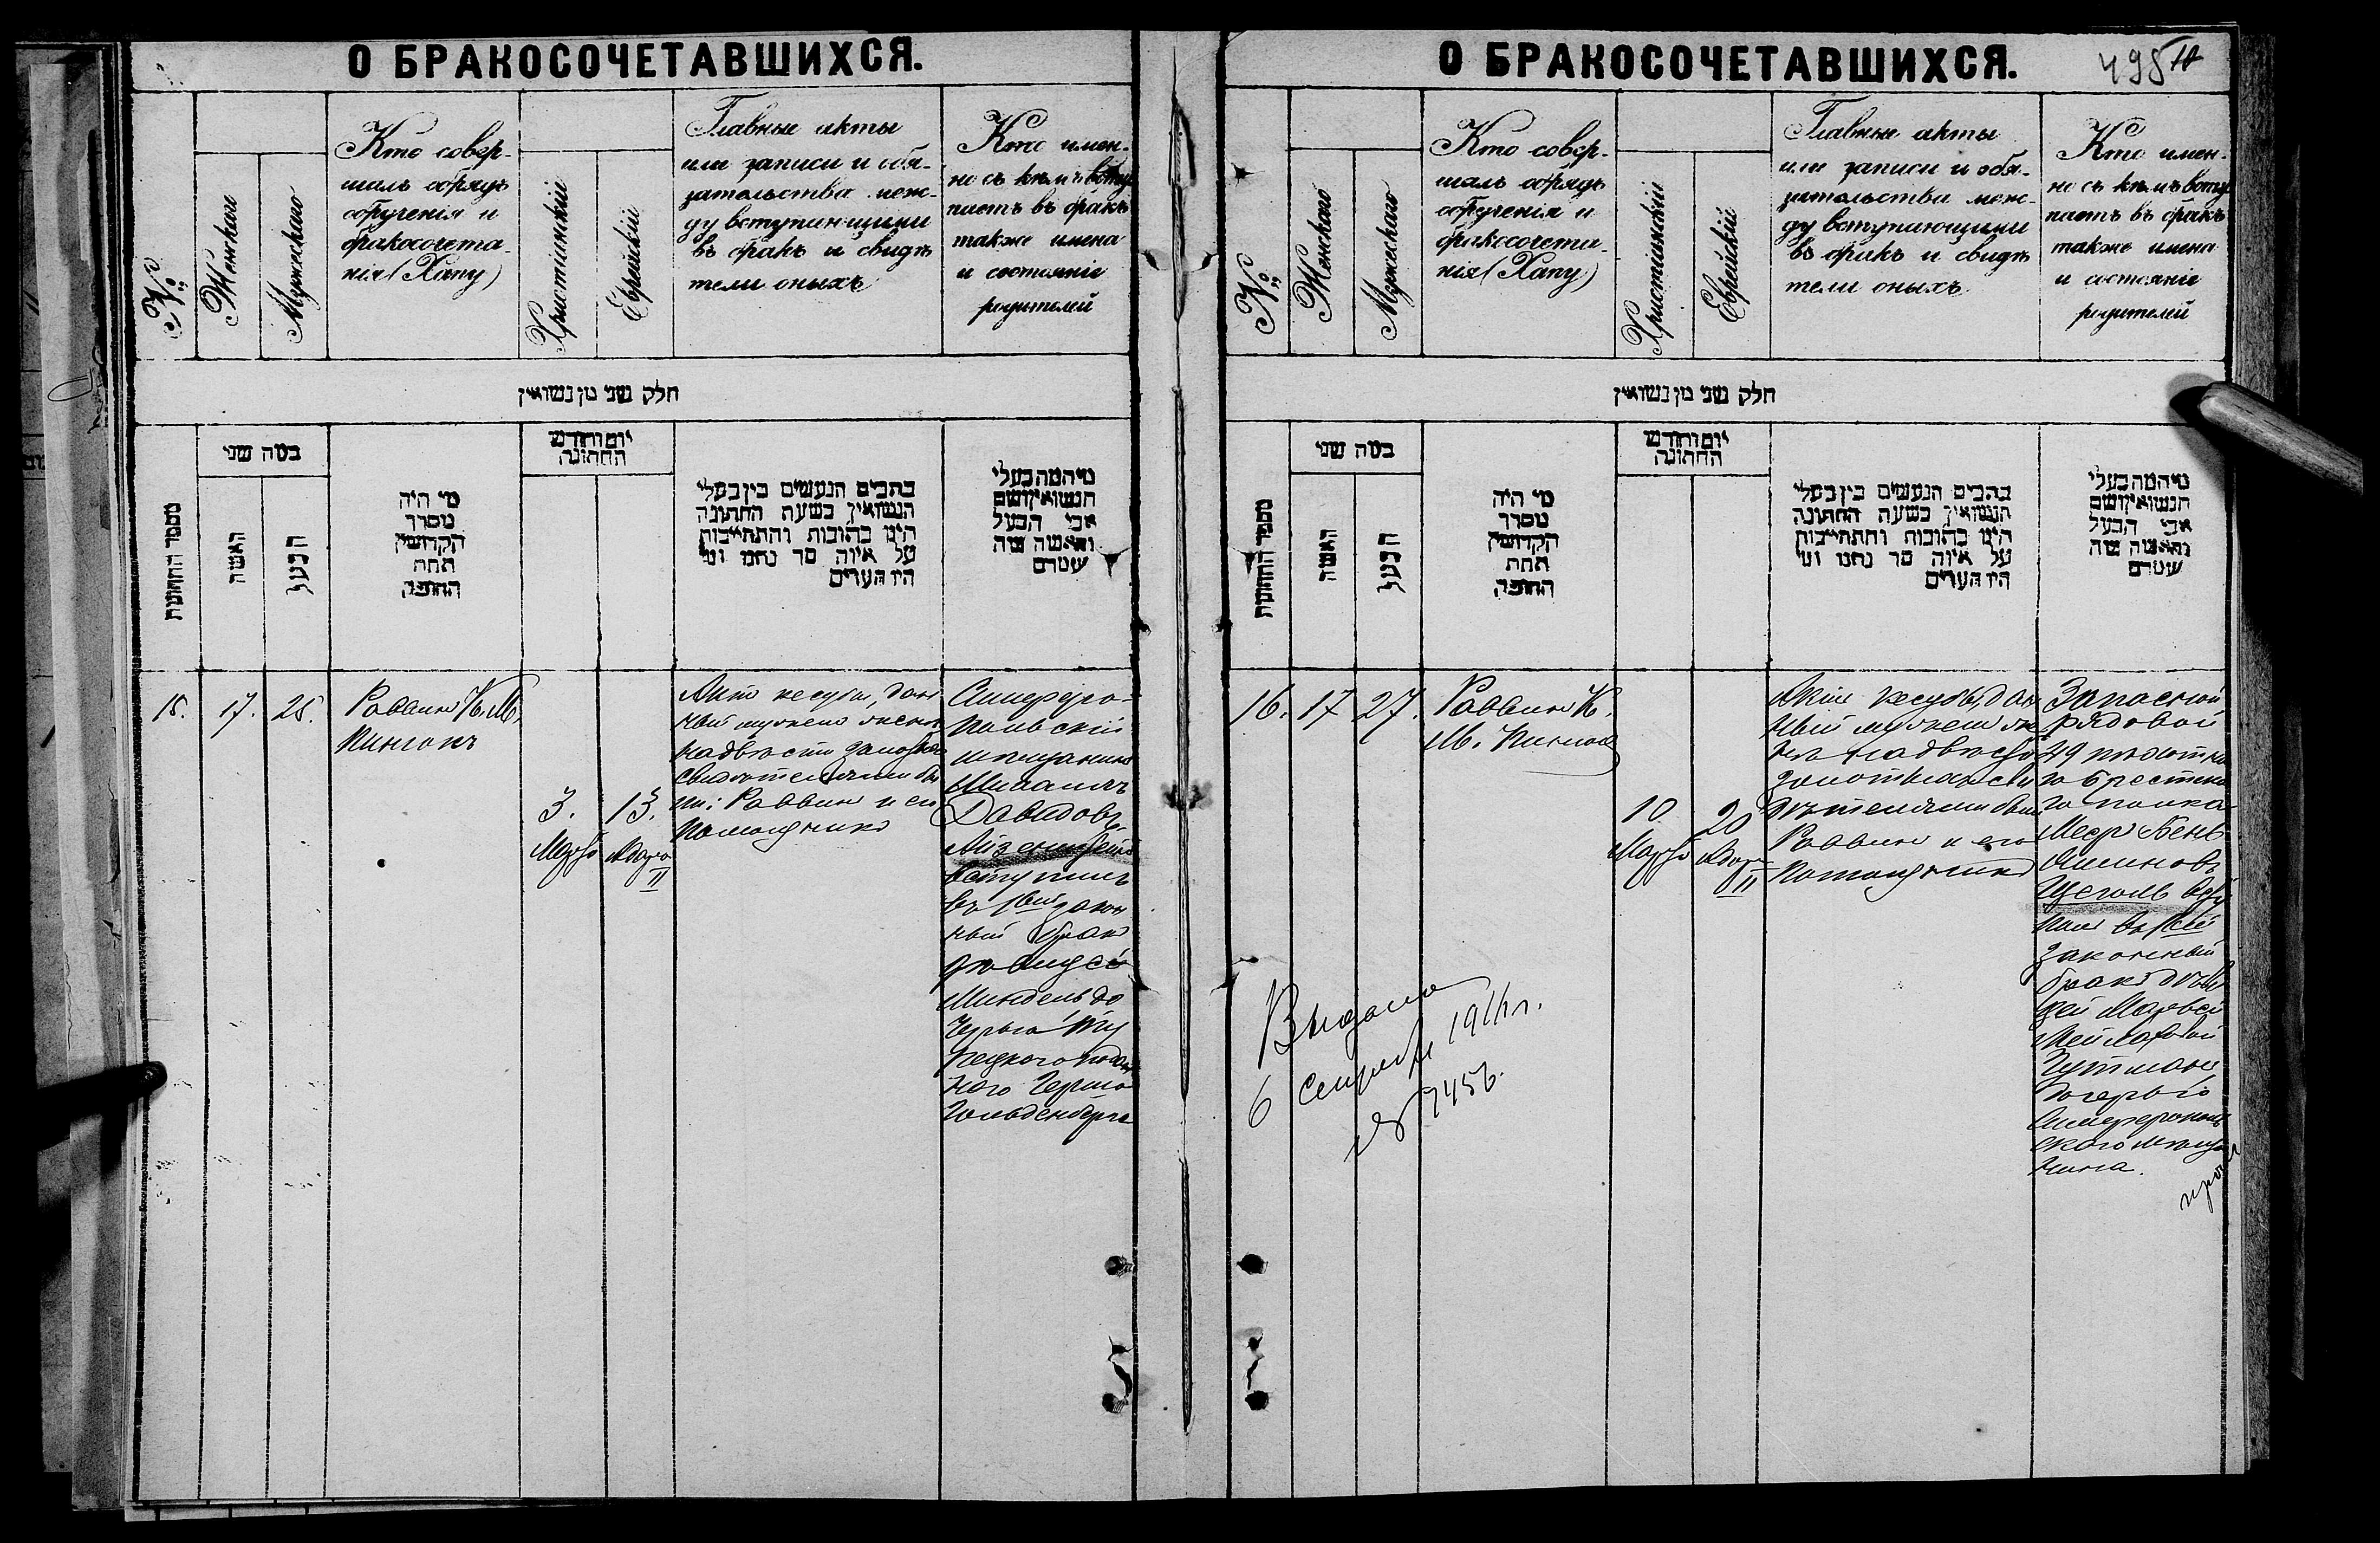 О БРАКОСОЧЕТАВШИХСЯ.
№
Женскаго
Мужескаго
Кто совер-
шалъ обрядъ
обрученія и
бракосочета-
нія (Хапу)
Христіанскій
Еврейскій
Главные акты
или записи и обя-
зательства меж-
ду вступающими
въ бракъ и свидѣ
тели оныхъ
Кто имен-
но съ кѣмъ всту
паетъ въ бракъ
также имена
и состояніе
родителей
חלק שני מן נשואין
מספר החתונות
כמה שני
האשה
הבעל
מי היה
מסדר
הקדושין
תחת
החופה
יום וחודש
החתונה
כתבים הנעשים בין בעלי
הנשואין בשעת החתונה
היינו כתובות והתחייבות
על איזה סך נתנו ומי
היו העדים
מי המה בעלי
הנשואין ושם
אבי הבעל
והאשה ומה
מעמדם
15.
17.
25.
Раввинъ К. М.
Пинчокъ
3.
Марта
13.
Адара
II
Актъ кесубы, дан
ный мужемъ женѣ
на двѣсти золотыхъ
свидѣтелями бы
ли: Раввинъ и его
помощникъ
Симферо-
польскій
мѣщанинъ
Михаилъ
Давидовъ
Айзенштейнъ
вступилъ
въ 1вый закон
ный бракъ
съ дѣвицей
Миндель до
черью Ту
рецкого поддан
наго Герша
Гольденберга
О БРАКОСОЧЕТАВШИХСЯ.
498
№
Женскаго
Мужескаго
Кто совер-
шалъ обрядъ
обрученія и
бракосочета-
нія (Хапу)
Христіанскій
Еврейскій
Главные акты
или записи и обя-
зательства меж-
ду вступающими
въ бракъ и свидѣ
тели оныхъ.
Кто имен-
но съ кѣмъ всту
паетъ въ бракъ
также имена
и состояніе
родителей
חלק שני מן נשואין
מספר החתונות
כמה שני
האשה
הבעל
מי היה
מסדר
הקדושין
תחת
החופה
יום וחודש
החתונה
כתבים הנעשים בין בעלי
הנשואין בשעת החתונה
היינו כתובות והתחייבות
על איזה סך נתנו ומי
היו העדים
מי המה בעלי
הנשואין ושם
אבי הבעל
והאשה ומה
מעמדם
16.
17
27.
Раввинъ К.
М. Пинчокъ
10
Марта
20
Адара
II
Актъ кесубы, дан
ный мужемъ же
нѣ на двѣсти
золотыхъ сви
дѣтелями были
Раввинъ и его
помощникъ
Запасной
рядовой
49 пѣхотна
го Брестска
го полка
Меер Бень
яминовъ
Щеголь всту
пилъ въ 1вый
законный
бракъ съ дѣви
цей
Гутманъ
дочерью
Симферополь
скаго мѣща
нина.
Выдана
6 1911 г.
№ 7456.